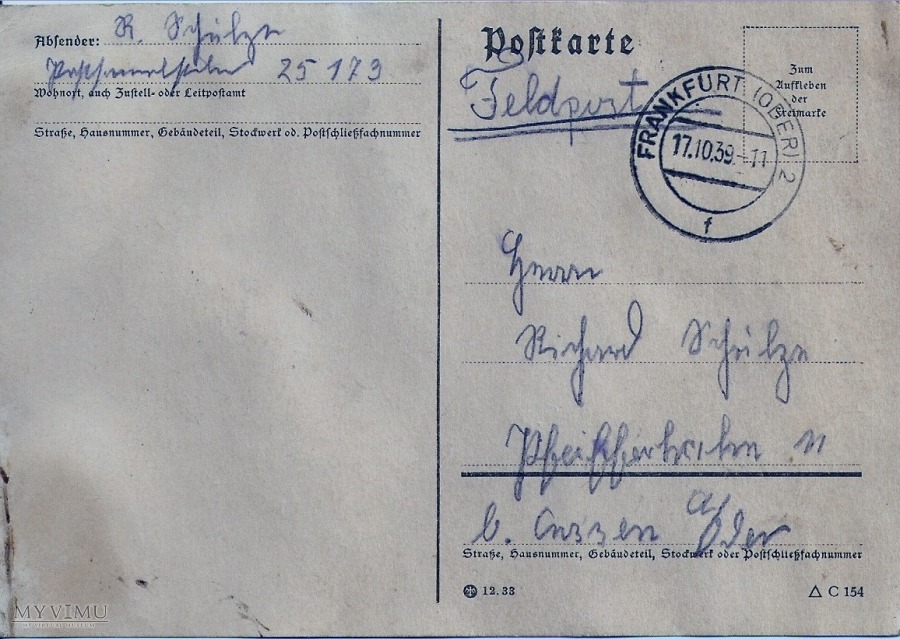 Absender: R. Schulze
25 173
Wohnort, auch Zustell- oder Leitpostamt
Straße, Hausnummer, Gebäudeteil, Stockwerk od. Postschließfachnummer
Postkarte
Feldpost
Zum
Aufkleben
der
Freimarke
FRANKFURT (ODER) 2
17.10.39.-11
f
Herrn
Richard Schulze
b. a/Oder
Straße, Hausnummer, Gebäudeteil, Stockwerk oder Postschließfachnummer
12.38
C 154
MYVIMU
MY VIRTUAL MUSEUM